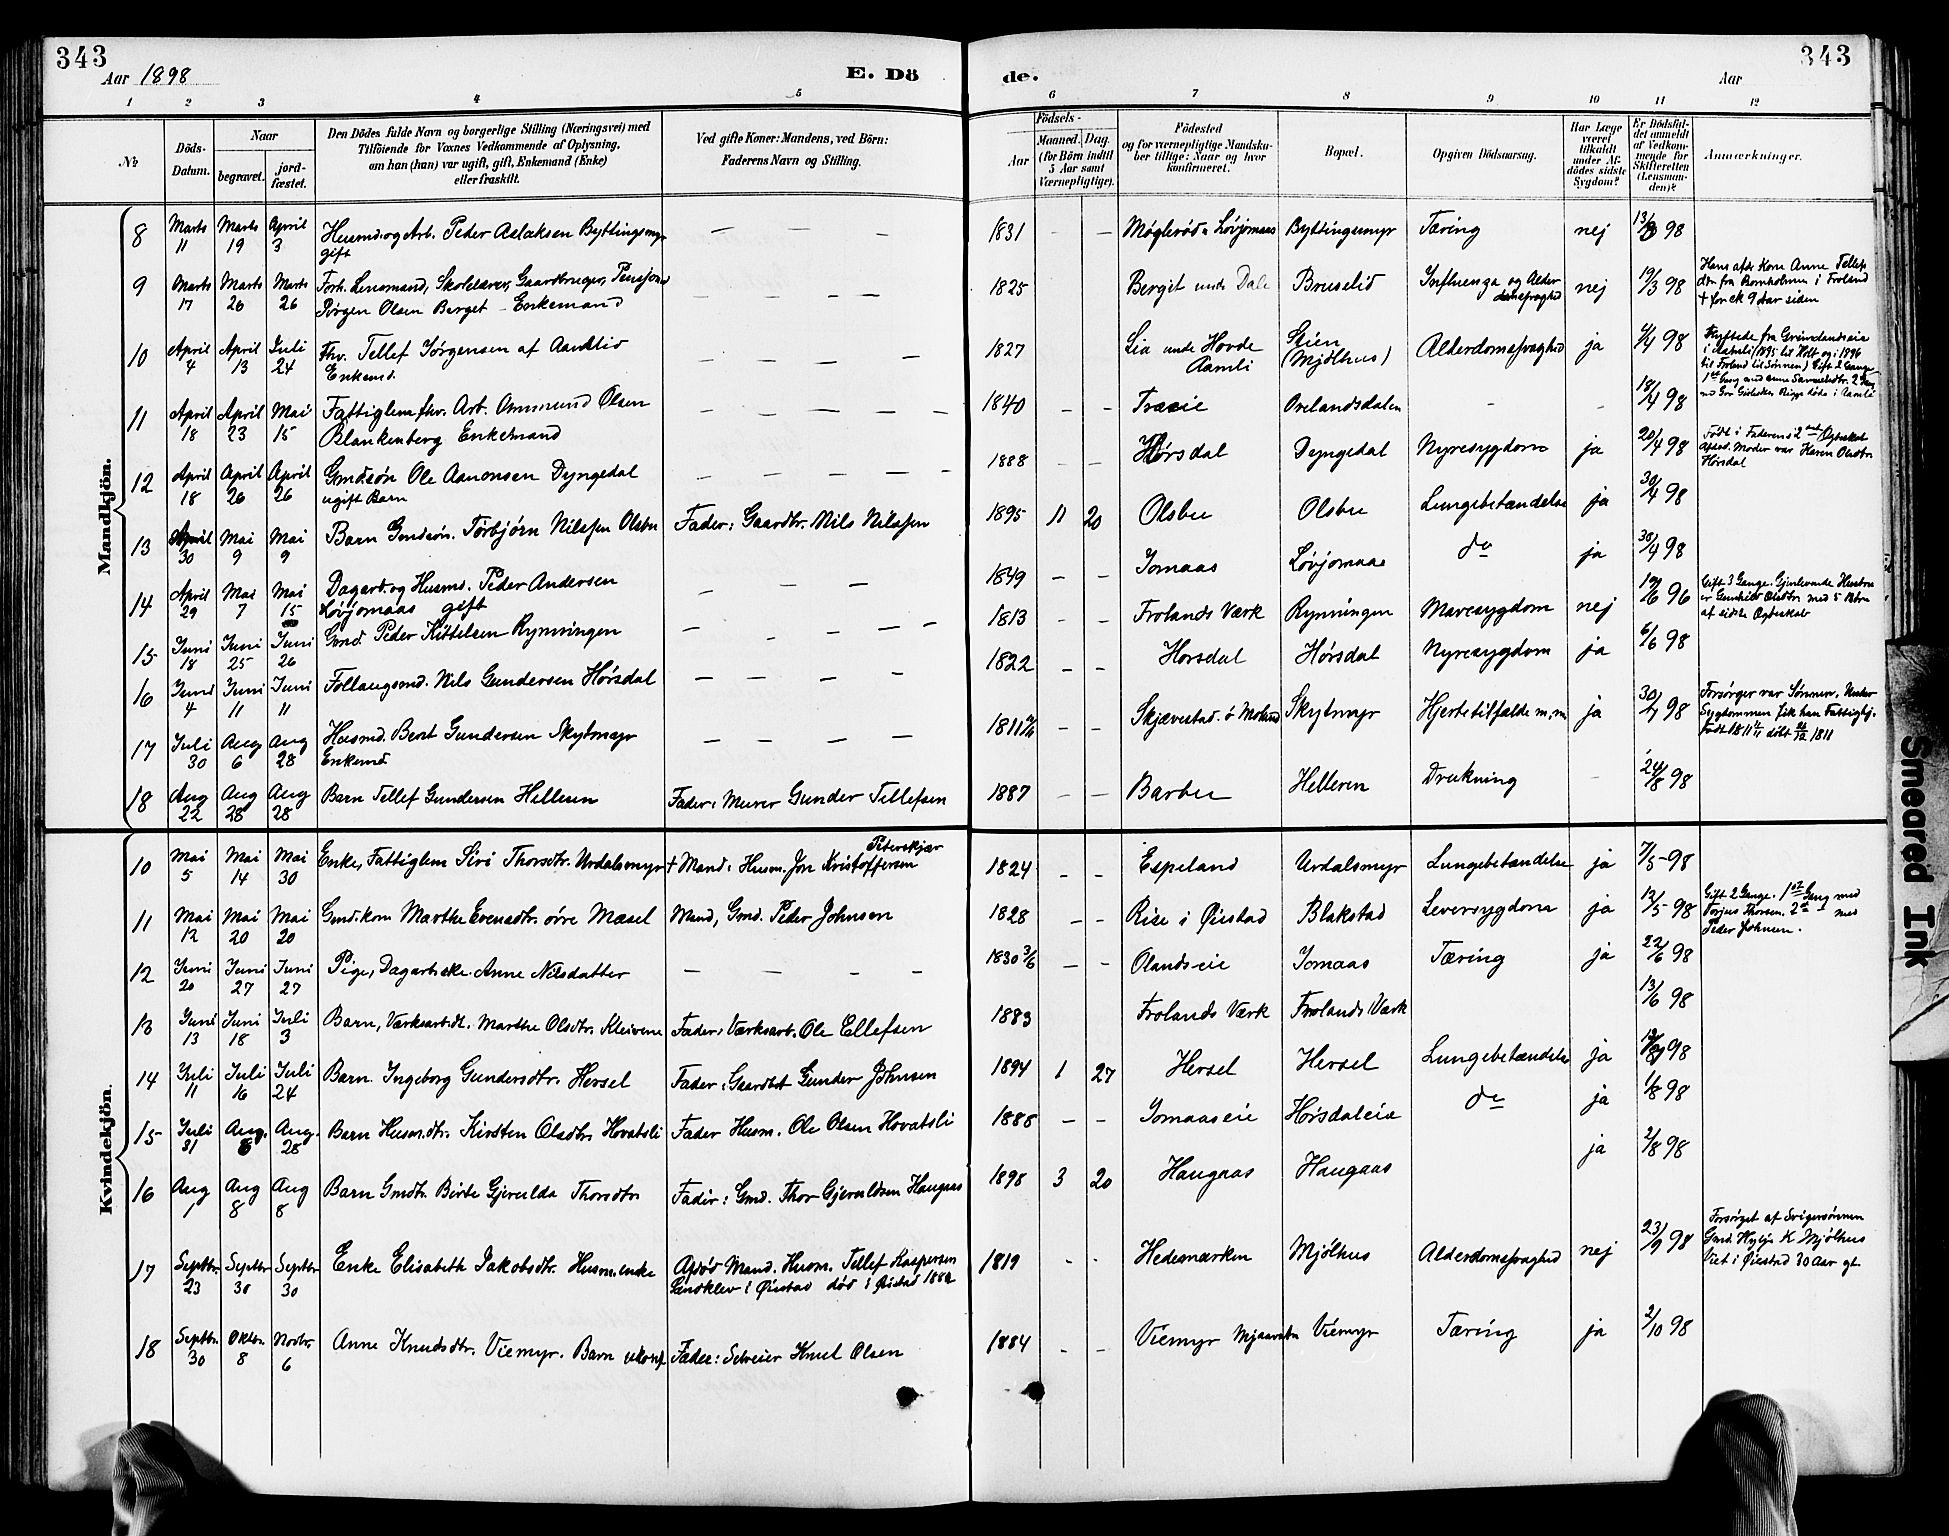 343
343
Aar 1898
E. Dö
de.
Aar
1 2 3 4 5 6 7 8 9 10 11 12
№
Döds-
Datum.
Naar
begravet.
jord-
fæstet.
Den Dödes fulde Navn og borgerlige Stilling (Næringsvei) med
Tilföiende for Voxnes Vedkommende af Oplysning,
om han (hun) var ugift, gift, Enkemand (Enke)
eller fraskilt.
Ved gifte Koner: Mandens, ved Börn:
Faderens Navn og Stilling.
Födsels-
Aar
Maaned.
Dag.
(for Börn indtil
5 Aar samt
Værnepligtige).
Födested
og for værnepligtige Mandska-
ber tillige: Naar og hvor
konfirmeret.
Bopæl.
Opgiven Dödsaarsag.
Har Læge
været
tilkaldt
under Af-
dödes sidste
Sygdom?
Er Dödsfal-
det anmeldt
af Vedkom-
mende for
Skifteretten
(Lensman-
den)?
Anmærkninger.
Mandkjön.
8 Marts 11 Marts 19 April 3 Husmd. og Arb. Peder Aslaksen Byttingsmyr gift — — — 1831 — — Møglerød u Løvjomaas Byttingsmyr Tæring nej 13/3 98
9 Marts 17 Marts 26 Marts 26 Forh. Lensmand, Skolelærer, Gaardbruger, Pensjonist Jørgen Olsen Berget - Enkemand — — — 1825 Berget under Dale Bruselid Influenza og Alderdomssvaghed nej 19/3 98 Hans afdr Kone Anne Tellefsdtr fra Bornholmen i Froland + for ck 9 Aar siden
10 April 4 April 13 Juli 24 Fhv. Tellef Jørgensen af Aandlid Enkemd. — — — — 1827 Lia under Hovde Aamli Stien (Mjölhus) Alderdomssvaghed ja 4/4 98
11 April 18 April 23 Mai 15 Fattiglem fhv. Arb. Ommund Olsen Blankenberg Enkemand — — — — — 1840 — — Træeie Ovelandsdalen - - 18/4 98
12 April 18 April 26 April 26 Gmdsøn Ole Aanonsen Dyngedal ugift Barn — — — — 1888 — — Hørsdal Dyngedal Nyresygdom ja 20/4 98 Født i Faderens 2det Ægteskab Afdøde Moder var Karen Olsdtr Hørsdal
13 April 30 Mai 9 Mai 9 Barn Gmdsøn. Torbjørn Nilssen Olsbu Fader: Gaardbr. Nils Nilssen 1895 11 20 Olsbu Olsbu Lungebetændelse ja 30/4 98
14 April 29 Mai 7 Mai 15 Dagarb. og Husmd. Peder Andersen Løvjomaas gift — — — 1849 — — Jomaas Løvjomaas do ja 30/4 98
15 Juni 18 Juni 25 Juni 26 Gmd Peder Kittelsen Rynningen — — — — 1813 — — Frolands Værk Rynningen Mavesygdom nej 19/6 96 Gift 3 Gange. Gjenlevende Hustru er Gunhild Olsdtr med 5 Børn af sidste Ægteskab
16 Juni 4 Juni 11 Juni 11 Føllaugsmd. Nils Gundersen Hørsdal — — — — 1822 — — Hørsdal Hørsdal Nyresygdom ja 6/6 98
17 Juli 30 Aug 6 Aug 28 Husmd. Bent Gundersen Skytmyr Enkemd — — — — 1811 — — Skjævestad. ö Moland Skytmyr Hjertetilfælde m.m ja 30/7 98 Forsørger var Sønnen, Under Sygdommen fik han Fattighj. Født 1811 døbt 1811
18 Aug 22 Aug 28 Aug 28 Barn Tellef Gundersen Helleren Fader: Murer Gunder Tellefsen 1887 — — Barbu Helleren Drukning - 24/8 98
Kvindekjön.
10 Mai 5 Mai 14 Mai 30 Enke, Fattiglem Siri Thorsdtr. Urdalsmyr + Mand: Husm. Jon Kristoffersen Peterskjær 1824 — — Espeland Urdalsmyr Lungebetændelse ja 7/5-98
11 Mai 12 Mai 20 Mai 20 Gmds.kone Marthe Evensdtr. øvre Mæsel Mand, Gmd. Peder Johnsen 1828 — — Rise i Øiestad Blakstad Leversygdom ja 12/5-98 Gift 2 Gange. 1ste Gang med Torjus Thorsen. 2d — med Peder Johnsen.
12 Juni 20 Juni 27 Juni 27 Pige, Dagarbske Anne Nilsdatter — — — — 1830 3/6 — — Olandseie Jomaas Tæring ja 22/6 98
13 Juni 13 Juni 18 Juli 3 Barn, Værksarb.dt. Marthe Olsdtr. Kleivene Fader: Værksarb. Ole Ellefsen 1883 Frolands Værk Frolands Værk 13/6 98
14 Juli 11 Juli 16 Juli 24 Barn. Ingeborg Gundersdtr. Hersel Fader: Gaardbr Gunder Johnsen 1894 1 27 Hersel Hersel Lungebetændelse ja 98
15 Juli 31 Aug. 6 Aug. 28 Barn Husm.dtr. Kirsten Olsdtr Hovatsli Fader Husm. Ole Olsen Hovatsli 1888 — — Jomaaseie Hørsdaleie do ja 1/8 98
16 Aug 1 Aug 8 Aug 8 Barn Gmdtr. Birte Gjerulda Thorsdtr. Fader: Gmd. Thor Gjeruldsen Haugaas 1898 3 20 Haugaas Haugaas ja 2/8 98
17 Septbr. 23 Septbr 30 Septbr 30 Enke Elisabeth Jakobsdtr. Husm.enke Afdød Mand. Husm. Tellef Kaspersen Sandklev i Øiestad død i Øiestad 1882 1819 - - Hedemarken Mjölhus Alderdomssvaghed nej 23/9 98 Forsørget af Svigersønnen Gmd. K Mjölhus Viet i Øiestad 30 Aar gl.
18 Septbr. 30 Oktbr. 8 Novbr. 6 Anne Knudsdtr. Viemyr. Barn ukonf Fader: Selveier Knut Olsen 1884 — — Viemyr Mjaavatn Viemyr Tæring ja 2/10 98
Smeared Ink